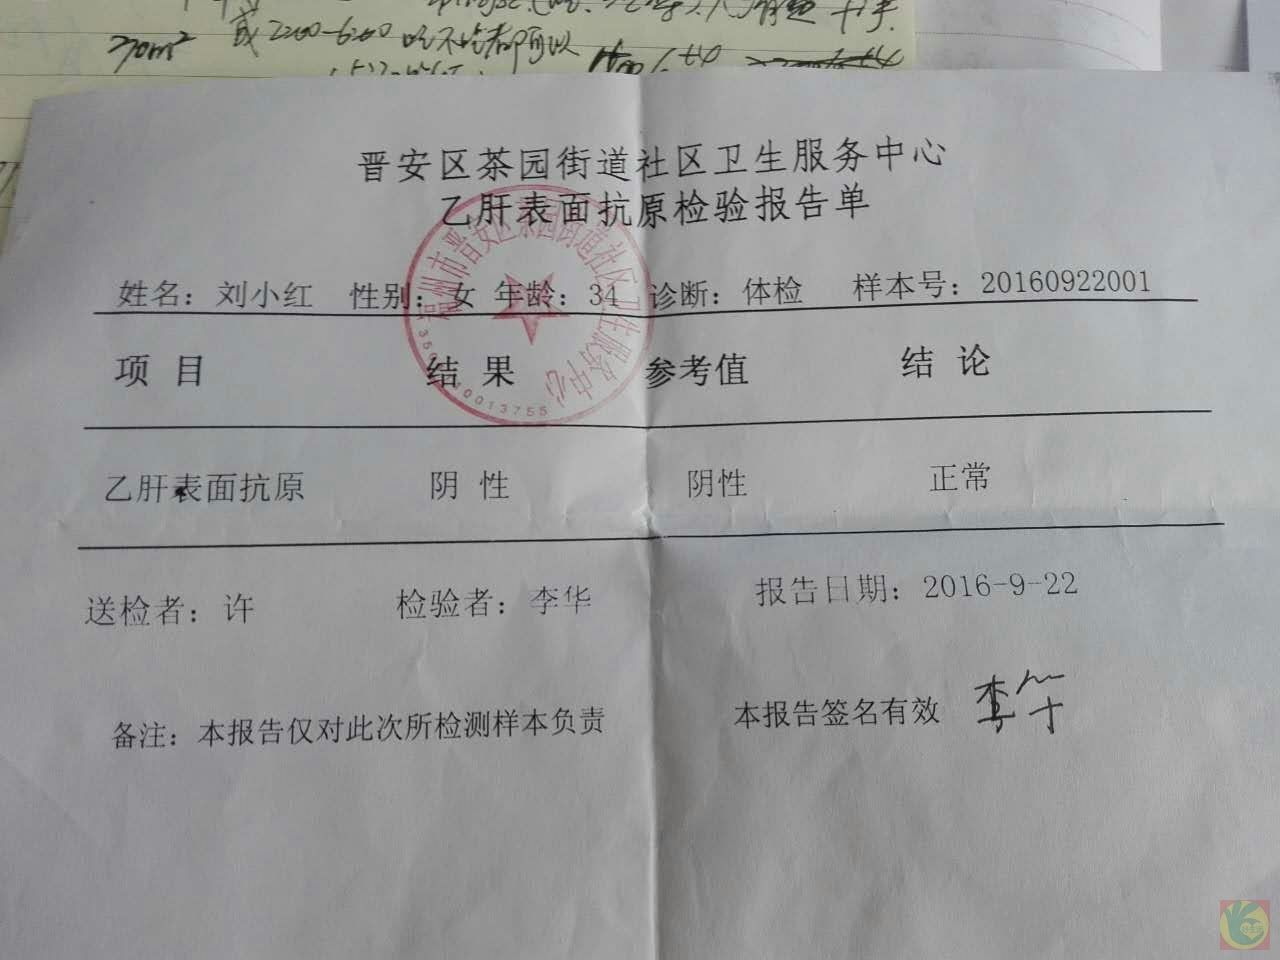 270m² 或2200-6200吃不吃都可以
晋安区茶园街道社区卫生服务中心
乙肝表面抗原检验报告单
福州市晋安区茶园街道社区卫生服务中心
姓名：刘小红 性别：女 年龄：34 诊断：体检 样本号：20160922001
项目 结果 参考值 结论
乙肝表面抗原 阴性 阴性 正常
送检者：许 检验者：李华 报告日期：2016-9-22
备注：本报告仅对此次所检测样本负责 本报告签名有效 李华